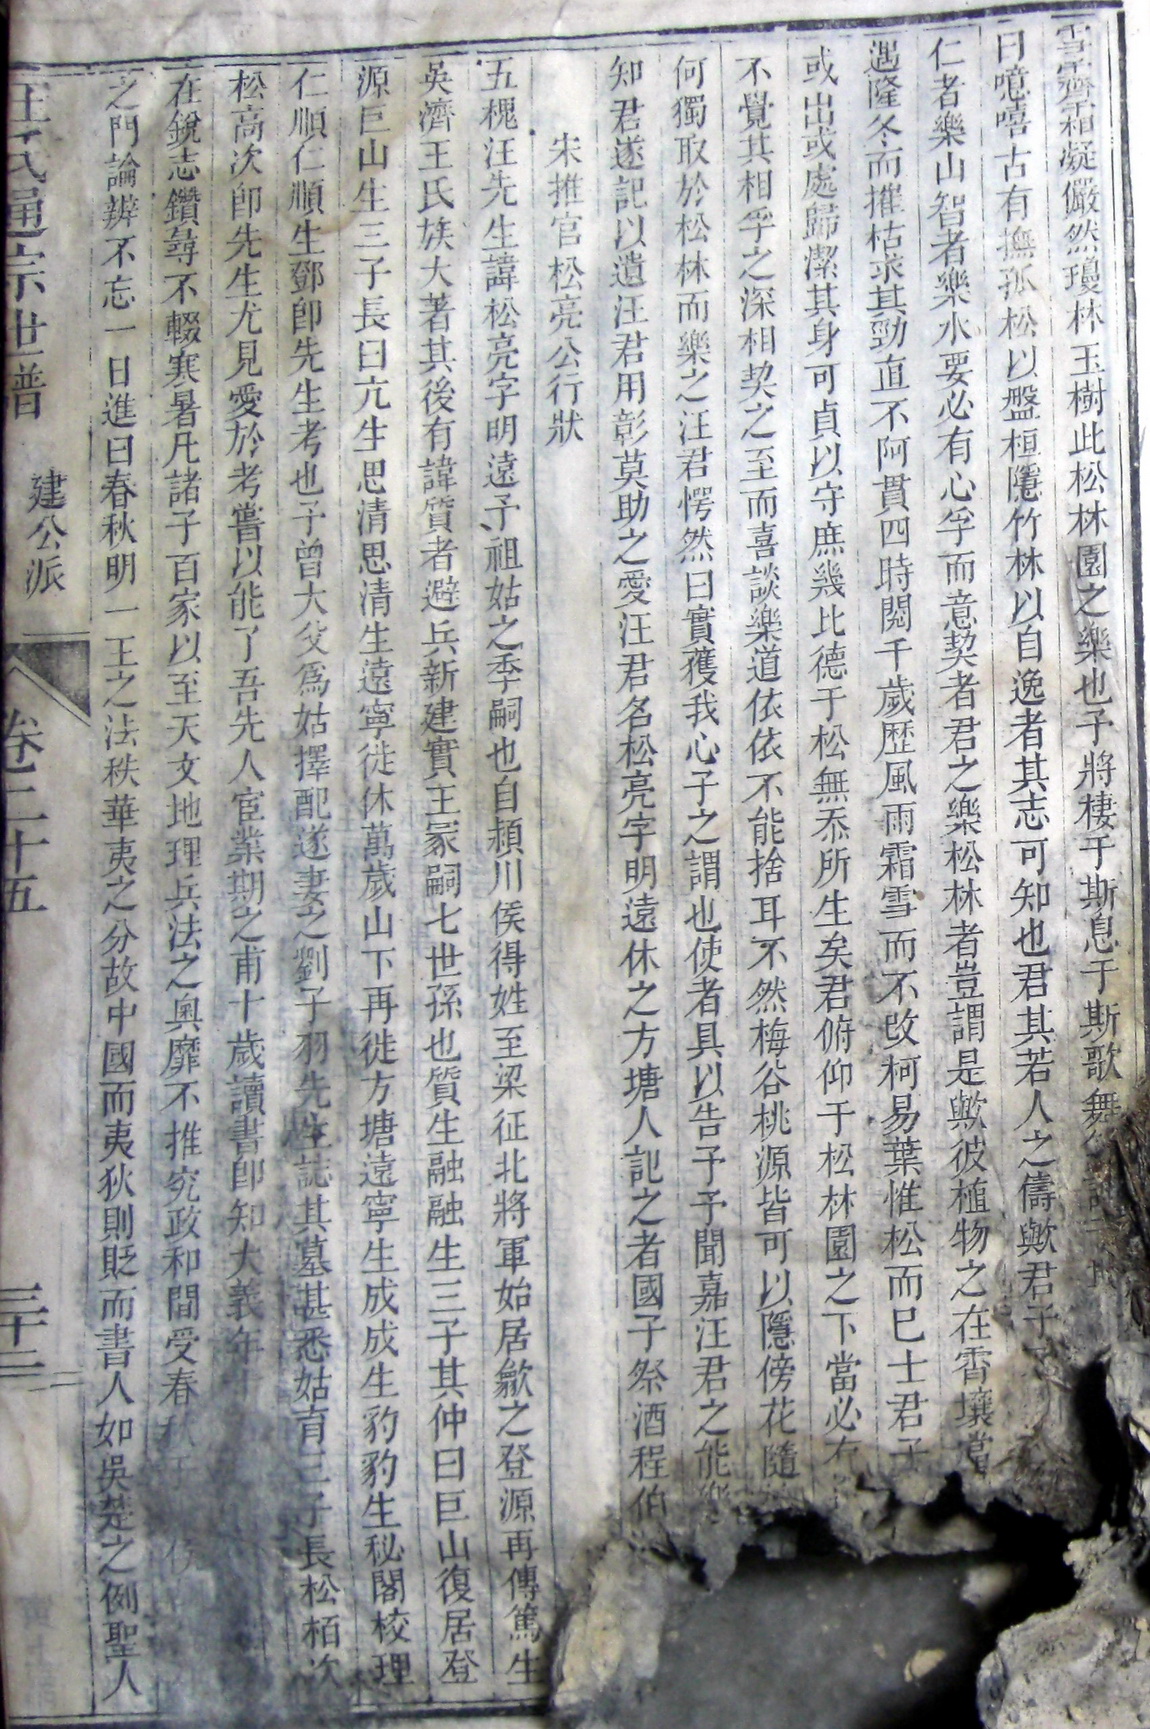 雪霽霜凝儼然瓊林玉樹此松林園之樂也予將棲于斯息于斯歌舞
曰噫嘻古有撫孤松以盤桓隱竹林以自逸者其志可知也君其若人之儔歟君子
仁者樂山智者樂水要必有心孚而意契者君之樂松林者豈謂是歟彼植物之在霄壤當
遇隆冬而摧枯求其勁直不阿貫四時閱千歲歷風雨霜雪而不改柯易葉惟松而已士君子
或出或處歸潔其身可貞以守庶幾比德于松無忝所生矣君俯仰于松林園之下當必有
不覺其相孚之深相契之至而喜談樂道依依不能捨耳不然梅谷桃源皆可以隱傍花隨
何獨取於松林而樂之汪君愕然曰實獲我心子之謂也使者具以告予予聞嘉汪君之能樂
知君遂記以遺汪君用彰莫助之愛汪君名松亮字明遠休之方塘人記之者國子祭酒程伯
宋推官松亮公行狀
五槐汪先生諱松亮字明遠予祖姑之季嗣也自潁川侯得姓至梁征北將軍始居歙之登源再傳篤生
吳濟王氏族大著其後有諱質者避兵新建實王家嗣七世孫也質生融融生三子其仲曰巨山復居登
源巨山生三子長曰亢生思清思清生遠寧徙休萬歲山下再徙方塘遠寧生成成生豹豹生秘閣校理
仁順仁順生鄧卽先生考也予曾大父爲姑擇配遂妻之劉子羽先生誌其墓甚悉姑育三子長松栢次
松高次卽先生尤見愛於考嘗以能了吾先人宦業期之甫十歲讀書卽知大義年
在銳志鑽尋不輟寒暑凡諸子百家以至天文地理兵法之奧靡不推究政和間受春秋于
之門論辨不忘一日進曰春秋明一王之法秩華夷之分故中國而夷狄則貶而書人如吳楚之例聖人
汪氏通宗世譜 建公派 卷二十五 三十三